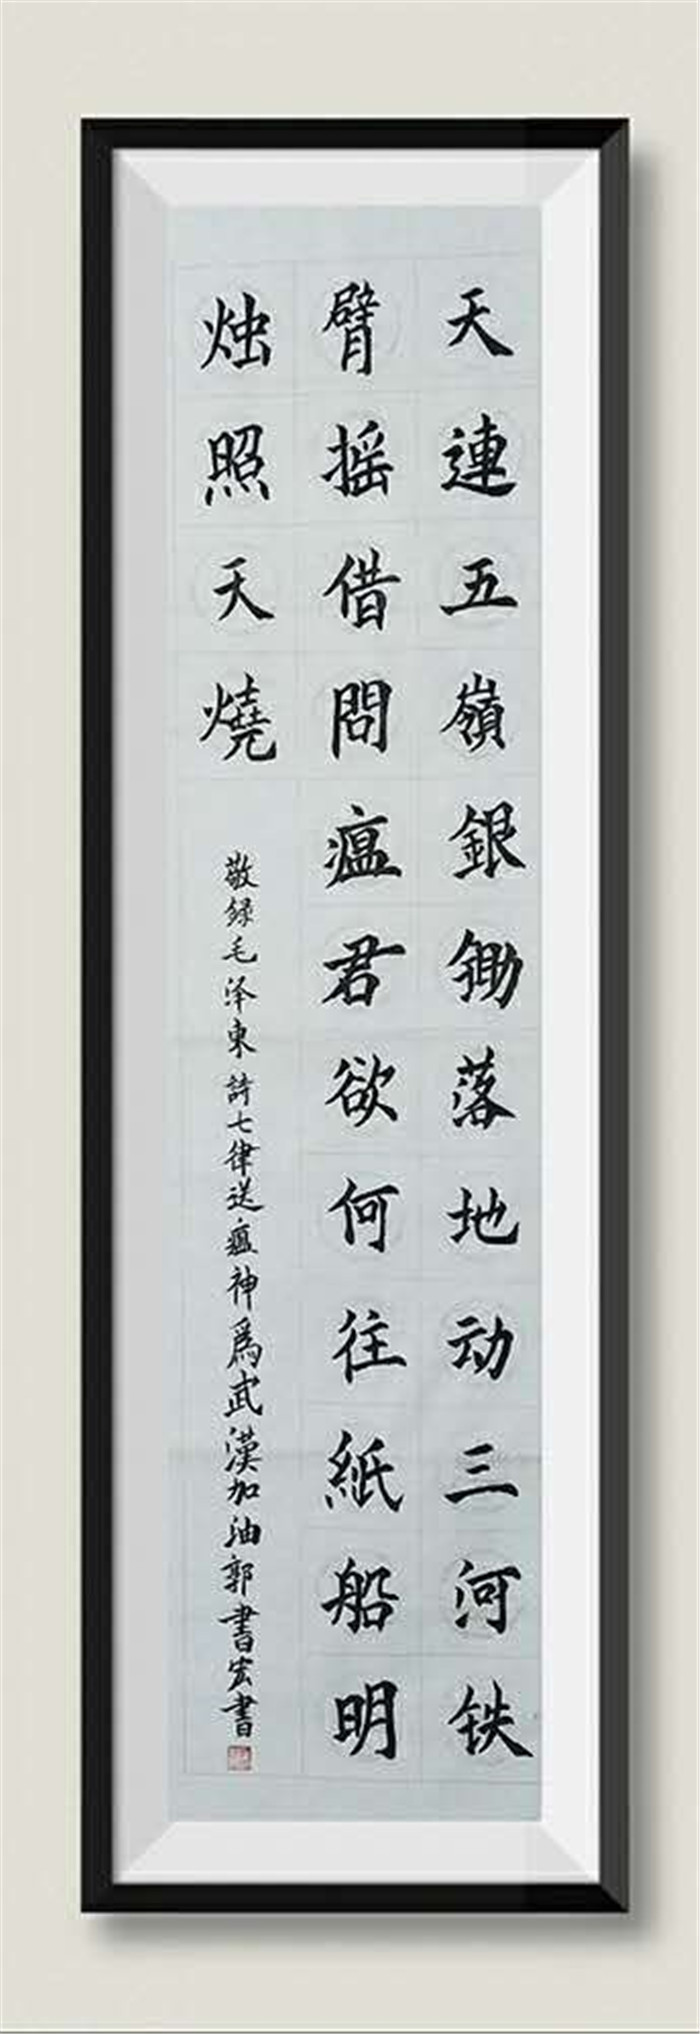 天連五嶺銀鋤落地动三河铁
臂摇借問瘟君欲何往紙船明
烛照天燒
敬録毛泽東詩七律送瘟神爲武漢加油郭書宏書